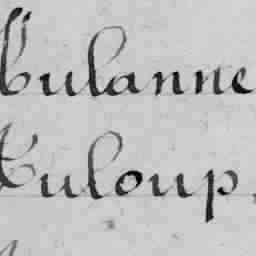 Culanne
Tuloup.